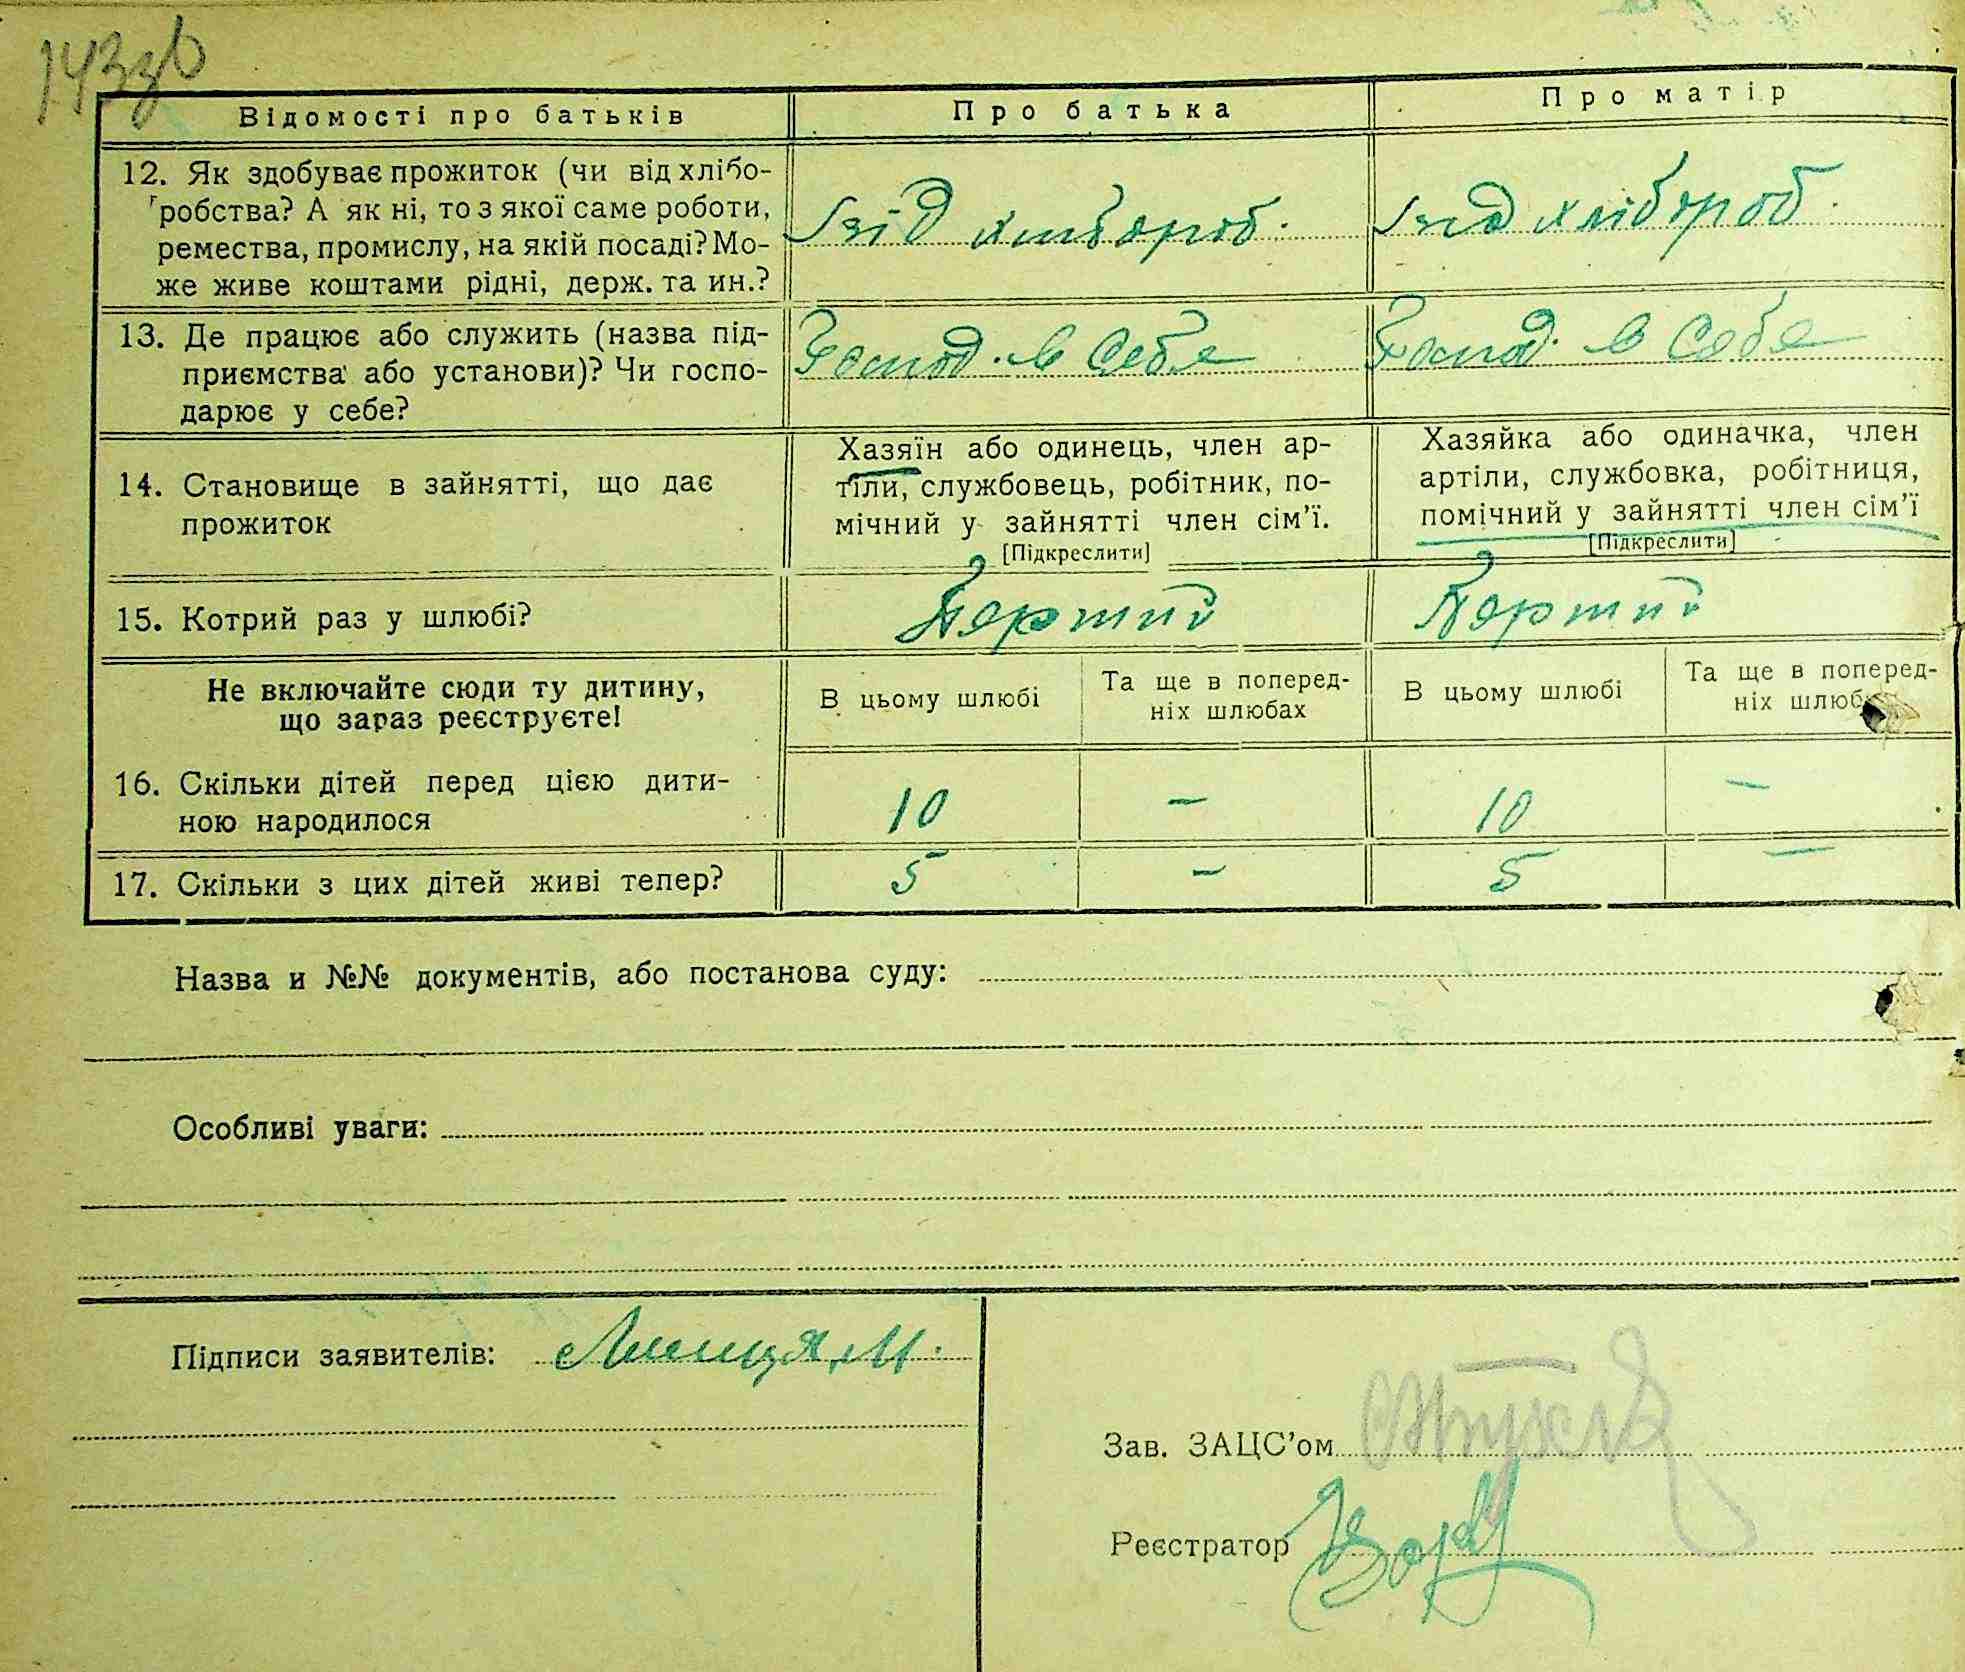 143зв
Відомості про батьків
Про батька
Про матір
12. Як здобуває прожиток (чи від хлібо-
робства? А як ні, то з якої саме роботи,
ремества, промислу, на якій посаді? Мо-
же живе коштами рідні, держ. та ин.?
від хлібороб.
від хлібороб.
13. Де працює або служить (назва під-
приємства або установи)? Чи госпо-
дарює у себе?
Господ. в себе
Господ. в себе
14. Становище в зайнятті, що дає
прожиток
Хазяїн або одинець, член ар-
тіли, службовець, робітник, по-
мічний у зайнятті член сім'ї.
[Підкреслити]
Хазяйка або одиначка, член
артіли, службовка, робітниця,
помічний у зайнятті член сім'ї
[Підкреслити]
15. Котрий раз у шлюбі?
Перший
Перший
Не включайте сюди ту дитину,
що зараз реєструєте!
В цьому шлюбі
Та ще в поперед-
ніх шлюбах
В цьому шлюбі
Та ще в поперед-
ніх шлюб
16. Скільки дітей перед цією дити-
ною народилося
10 – 10 –
17. Скільки з цих дітей живі тепер?
5 – 5 –
Назва и №№ документів, або постанова суду:
Особливі уваги:
Підписи заявителів:
Зав. ЗАЦС'ом
Реєстратор